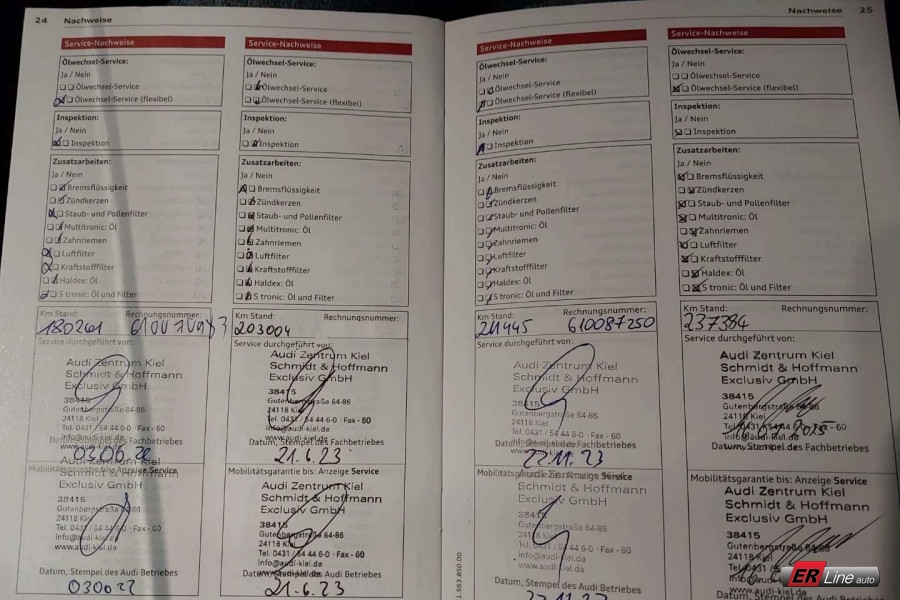 24 Nachweise
Service-Nachweise
Ölwechsel-Service:
Ja / Nein
Ölwechsel-Service
Ölwechsel-Service (flexibel)
Inspektion:
Ja / Nein
Inspektion
Zusatzarbeiten:
Ja / Nein
Bremsflüssigkeit
Zündkerzen
Staub- und Pollenfilter
Multitronic: Öl
Zahnriemen
Luftfilter
Kraftstofffilter
Haldex: Öl
S tronic: Öl und Filter
Km Stand: Rechnungsnummer:
180201
Service durchgeführt von:
Audi Zentrum Kiel
Schmidt & Hoffmann
Exclusiv GmbH
38415
Gutenbergstraße 84-86
24118 Kiel
Tel. 0431 / 54 44 6-0 · Fax - 60
info@audi-kiel.de
www.audi-kiel.de
Datum, Stempel des Fachbetriebes
03.06.22
Mobilitätsgarantie bis: Anzeige Service
Audi Zentrum Kiel
Schmidt & Hoffmann
Exclusiv GmbH
38415
Gutenbergstraße 84-86
24118 Kiel
Tel. 0431 / 54 44 6-0 · Fax - 60
info@audi-kiel.de
www.audi-kiel.de
Datum, Stempel des Audi Betriebes
030622
Service-Nachweise
Ölwechsel-Service:
Ja / Nein
Ölwechsel-Service
Ölwechsel-Service (flexibel)
Inspektion:
Ja / Nein
Inspektion
Zusatzarbeiten:
Ja / Nein
Bremsflüssigkeit
Zündkerzen
Staub- und Pollenfilter
Multitronic: Öl
Zahnriemen
Luftfilter
Kraftstofffilter
Haldex: Öl
S tronic: Öl und Filter
Km Stand: Rechnungsnummer:
203004
Service durchgeführt von:
Audi Zentrum Kiel
Schmidt & Hoffmann
Exclusiv GmbH
38415
Gutenbergstraße 84-86
24118 Kiel
Tel. 0431 / 54 44 6-0 · Fax - 60
info@audi-kiel.de
www.audi-kiel.de
Datum, Stempel des Fachbetriebes
21.6.23
Mobilitätsgarantie bis: Anzeige Service
Audi Zentrum Kiel
Schmidt & Hoffmann
Exclusiv GmbH
38415
Gutenbergstraße 84-86
24118 Kiel
Tel. 0431 / 54 44 6-0 · Fax - 60
info@audi-kiel.de
www.audi-kiel.de
Datum, Stempel des Audi Betriebes
21.6.23
Nachweise 25
Service-Nachweise
Ölwechsel-Service:
Ja / Nein
Ölwechsel-Service
Ölwechsel-Service (flexibel)
Inspektion:
Ja / Nein
Inspektion
Zusatzarbeiten:
Ja / Nein
Bremsflüssigkeit
Zündkerzen
Staub- und Pollenfilter
Multitronic: Öl
Zahnriemen
Luftfilter
Kraftstofffilter
Haldex: Öl
S tronic: Öl und Filter
Km Stand: Rechnungsnummer:
610087250
Service durchgeführt von:
Audi Zentrum Kiel
Schmidt & Hoffmann
Exclusiv GmbH
38415
Gutenbergstraße 84-86
24118 Kiel
Tel. 0431 / 54 44 6-0 · Fax - 60
info@audi-kiel.de
Datum, Stempel des Fachbetriebes
22.11.23
Mobilitätsgarantie bis: Anzeige Service
Audi Zentrum Kiel
Schmidt & Hoffmann
Exclusiv GmbH
38415
Gutenbergstraße 84-86
24118 Kiel
Tel. 0431 / 54 44 6-0 · Fax - 60
info@audi-kiel.de
www.audi-kiel.de
Datum, Stempel des Audi Betriebes
Service-Nachweise
Ölwechsel-Service:
Ja / Nein
Ölwechsel-Service
Ölwechsel-Service (flexibel)
Inspektion:
Ja / Nein
Inspektion
Zusatzarbeiten:
Ja / Nein
Bremsflüssigkeit
Zündkerzen
Staub- und Pollenfilter
Multitronic: Öl
Zahnriemen
Luftfilter
Kraftstofffilter
Haldex: Öl
S tronic: Öl und Filter
Km Stand: Rechnungsnummer:
237384
Service durchgeführt von:
Audi Zentrum Kiel
Schmidt & Hoffmann
Exclusiv GmbH
38415
Gutenbergstraße 84-86
24118 Kiel
Datum, Stempel des Fachbetriebes
Mobilitätsgarantie bis: Anzeige Service
Audi Zentrum Kiel
Schmidt & Hoffmann
Exclusiv GmbH
38415
24118 Kiel
1.563.850.00
ER Line auto